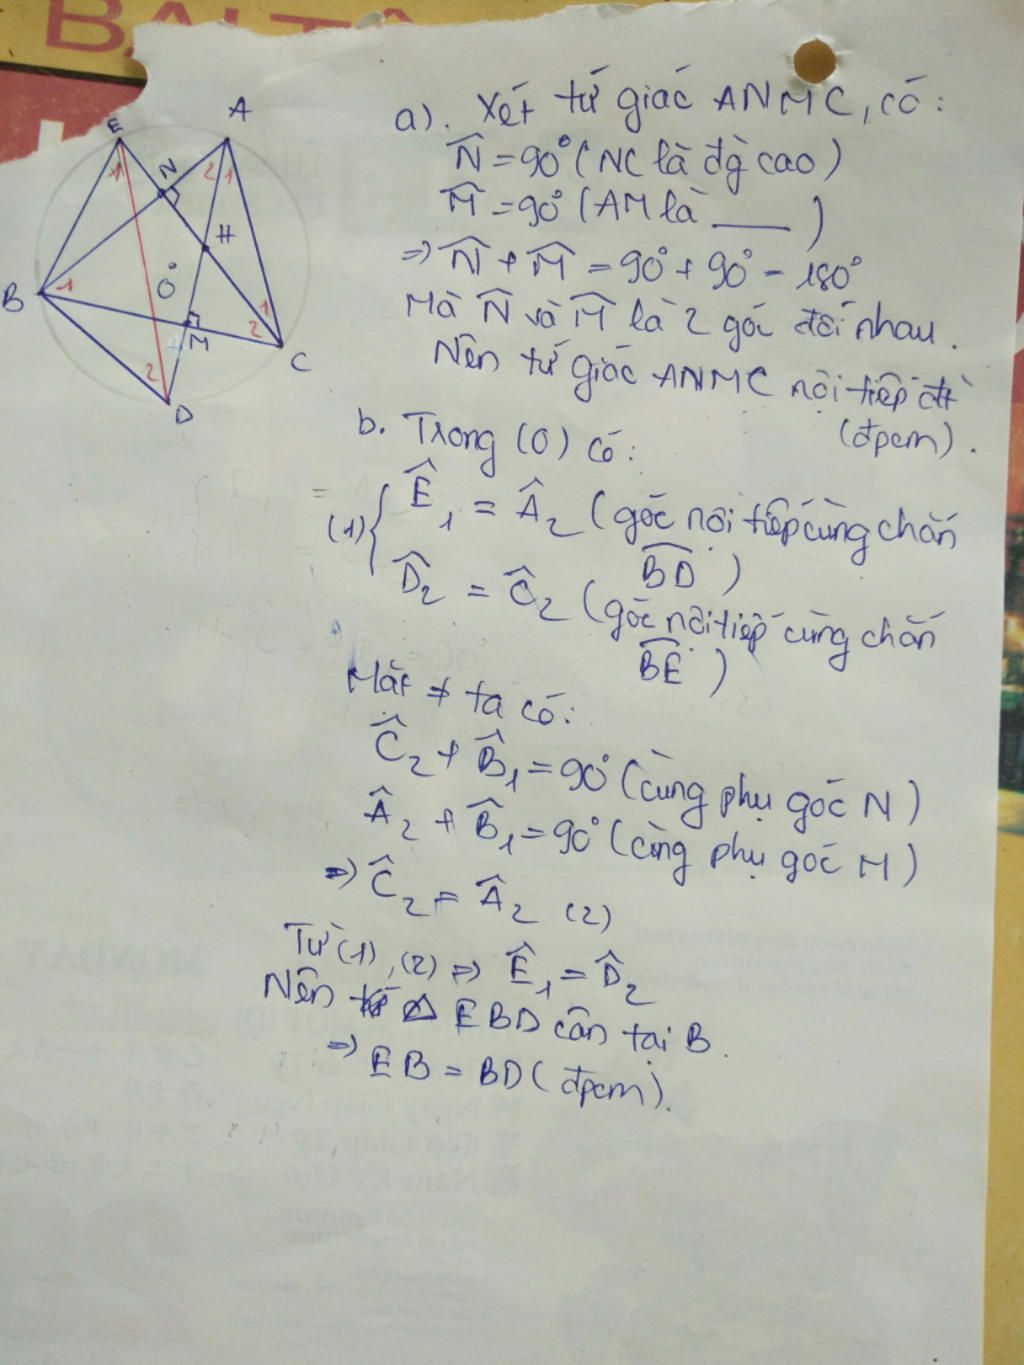 BÀI TÂ
E
A
N
2
1
1
H
B
1
O
1
2
M
C
2
D
a). Xét tứ giác ANMC, có:
N̂ = 90° (NC là đg cao)
M̂ = 90° (AM là ____ )
=> N̂ + M̂ = 90° + 90° = 180°
Mà N̂ và M̂ là 2 góc đối nhau.
Nên tứ giác ANMC nội tiếp đt
(đpcm).
b. Trong (O) có:
(1) { Ê₁ = Â₂ (góc nội tiếp cùng chắn
BD)
D̂₂ = Ĉ₂ (góc nội tiếp cùng chắn
BE)
Mặt ≠ ta có:
Ĉ₂ + B̂₁ = 90° (cùng phụ góc N)
Â₂ + B̂₁ = 90° (cùng phụ góc M)
=> Ĉ₂ = Â₂ (2)
Từ (1), (2) => Ê₁ = D̂₂
Nên Δ EBD cân tại B.
=> EB = BD (đpcm).